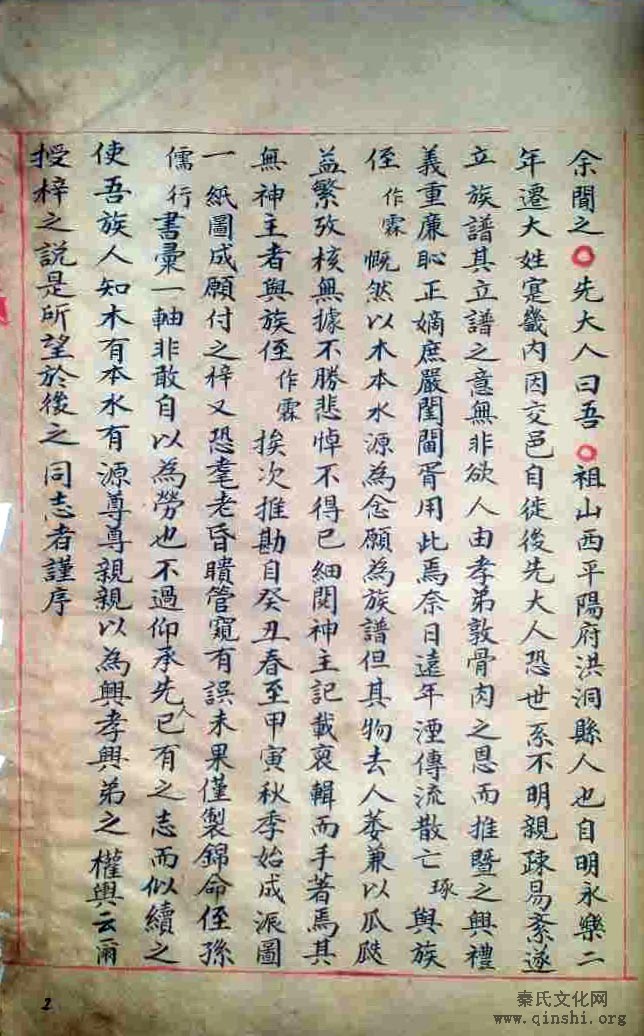 余聞之先大人曰吾祖山西平陽府洪洞縣人也自明永樂二
年遷大姓寔畿內因交邑自徒後先大人恐世系不明親疎易紊遂
立族譜其立譜之意無非欲人由孝弟敦骨肉之恩而推暨之興禮
義重廉恥正嫡庶嚴閨閫胥用此焉奈日遠年湮傳流散亡琢與族
侄作霖慨然以木本水源為念願為族譜但其物去人萎兼以瓜瓞
益繁攷核無據不勝悲悼不得已細閱神主記載裒輯而手著焉其
無神主者與族侄作霖挨次推勘自癸丑春至甲寅秋季始成派圖
一紙圖成願付之梓又恐耄老昏瞶管窺有誤未果僅製錦命侄孫
儒行書彙一軸非敢自以為勞也不過仰承先人已有之志而似續之
使吾族人知木有本水有源尊尊親親以為興孝興弟之權輿云爾
授梓之說是所望於後之同志者謹序
2
秦氏文化网
www.qinshi.org